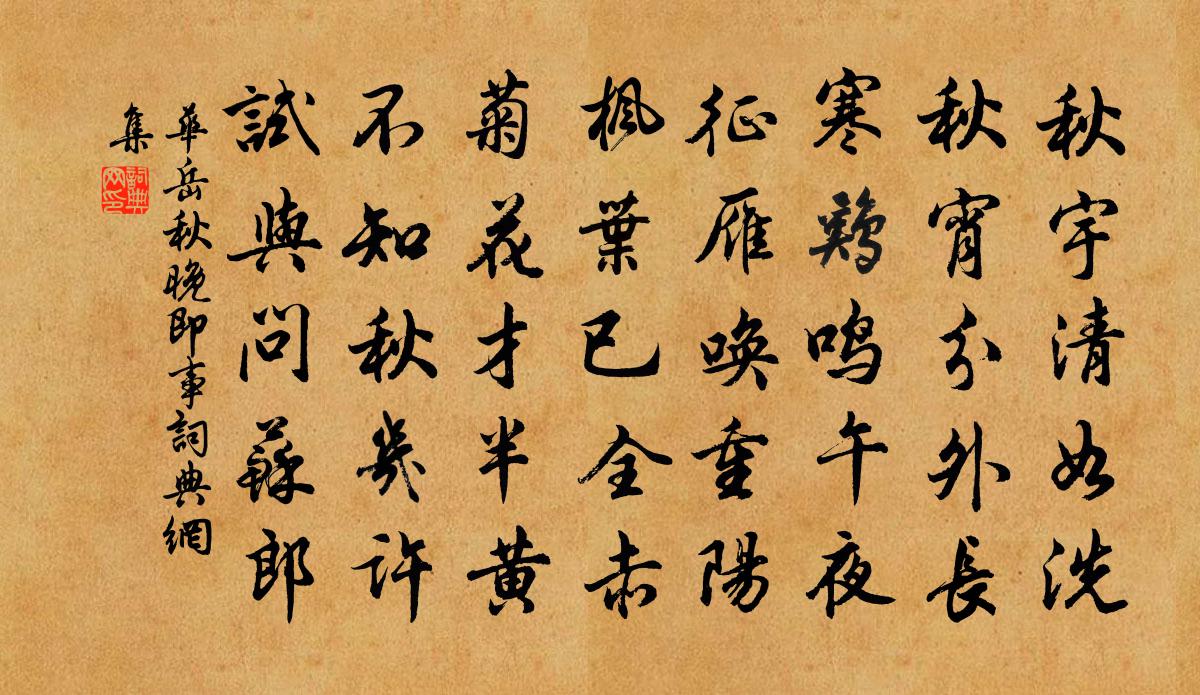 秋宇清如洗
秋宵分外長
寒鷄鳴午夜
征雁喚重陽
楓葉已全赤
菊花才半黄
不知秋幾許
試與問蘇郎
華岳秋晚即事詞典網
集
詞典網印